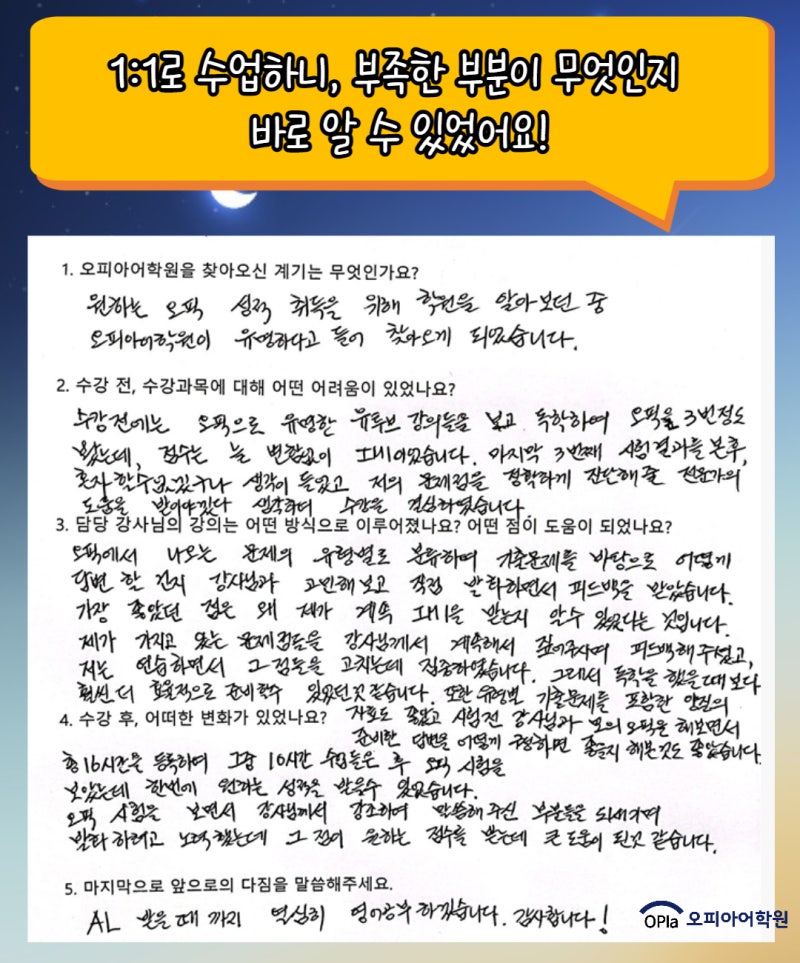 1:1로 수업하니, 부족한 부분이 무엇인지
바로 알 수 있었어요!
1. 오피아어학원을 찾아오신 계기는 무엇인가요?
원하는 오픽 성적 취득을 위해 학원을 알아보던 중
오피아어학원이 유명하다고 들어 찾아오게 되었습니다.
2. 수강 전, 수강과목에 대해 어떤 어려움이 있었나요?
수강전에는 오픽으로 유명한 유튜브 강의들을 보고 독학하여 오픽을 3번정도
봤는데, 점수는 늘 변함없이 IH이었습니다. 마지막 3번째 시험결과를 본후,
혼자 할수없겠구나 생각이 들었고 저의 문제점을 정확하게 진단해줄 전문가의
도움을 받아야겠다 생각하며 수강을 결심하였습니다.
3. 담당 강사님의 강의는 어떤 방식으로 이루어졌나요? 어떤 점이 도움이 되었나요?
오픽에서 나오는 문제의 유형별로 분류하며 기출문제를 바탕으로 어떻게
답변 할 건지 강사님과 고민해보고 직접 발화하면서 피드백을 받았습니다.
가장 좋았던 점은 왜 제가 계속 IH를 받는지 알수 있었다는 것입니다.
제가 가지고 있는 문제점들을 강사님께서 계속해서 짚어주시며 피드백해주셨고,
저는 연습하면서 그 점들을 고치는데 집중하였습니다. 그래서 독학을 했을때 보다
훨씬 더 효율적으로 준비할수 있었던것 같습니다. 또한 유형별 기출문제를 포함한 양질의
자료도 좋았고 시험전 강사님과 모의 오픽을 해보면서
준비한 답변을 어떻게 구현하면 좋을지 해본것도 좋았습니다.
4. 수강 후, 어떠한 변화가 있었나요?
총 16시간을 등록하여 그중 10시간 수업들은 후 오픽 시험을
보았는데 한번에 원하는 성적을 받을수 있었습니다.
오픽 시험을 보면서 강사님께서 강조하여 말씀해주신 부분들을 되새기며
발화 하려고 노력했는데 그 점이 원하는 점수를 받는데 큰 도움이 된것 같습니다.
5. 마지막으로 앞으로의 다짐을 말씀해주세요.
AL 받을때 까지 열심히 영어공부 하겠습니다. 감사합니다!
OPIa 오피아어학원